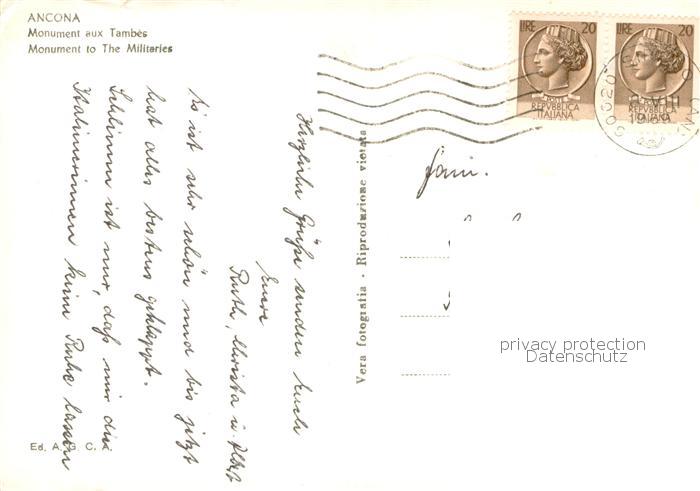 ANCONA
Monument aux Tambés
Monument to The Militaries
LIRE 20
REPVBBLICA
ITALIANA
LIRE 20
REPVBBLICA
ITALIANA
Es ist sehr schön und bis jetzt
hat alles bestens geklappt.
Schlimm ist nur, daß mir die
Italienerinnen keine Ruhe lassen
Herzliche Grüße senden Euch
Eure
Ruth, Christa u.
Vera fotografia - Riproduzione vietata
Fam.
privacy protection
Datenschutz
Ed. A. G. C. A.